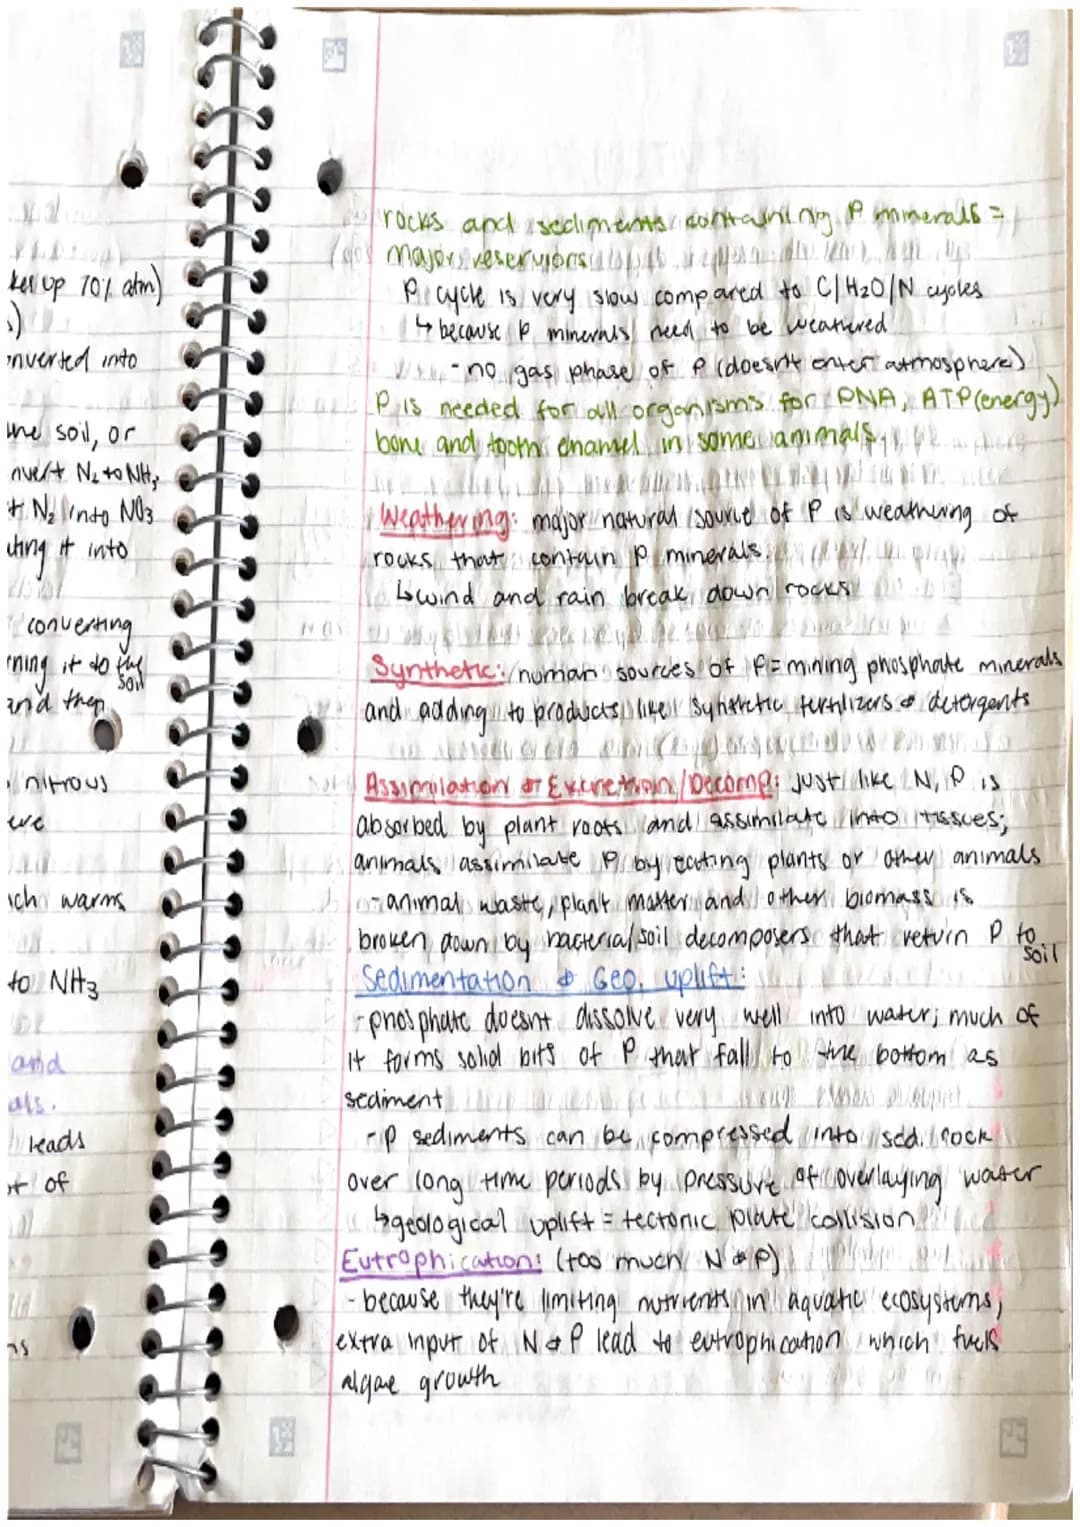 kes up 70% atm)
s)
onverted into
the soil, or
nvert N2 to NH3
t N2 into NO3
ating it into
converting
rning it to the
soil
and then
nitrous
ere
ich warms
to NH3
and
als.
leads
ot of
ns
rocks and sediments containing P minerals =
major reserviors
P cycle is very slow compared to C/H2O/N cycles
↳ because P minerals need to be weathered
- no gas phase of P (doesn't enter atmosphere)
P is needed for all organisms for DNA, ATP(energy)
bone and tooth enamel in some animals
Weathering: major natural source of P is weathering of
rocks that contain P minerals.
↳ wind and rain break down rocks
Synthetic: human sources of P = mining phosphate minerals
and adding to products like synthetic fertilizers & detergents
Assimilation & Excretion/Decomp: just like N, P is
absorbed by plant roots and assimilate into tissues;
animals assimilate P by eating plants or other animals
- animal waste, plant matter and other biomass is
broken down by bacteria/soil decomposers that return P to
soil
Sedimentation & Geo. uplift:
- phosphate doesnt dissolve very well into water; much of
it forms solid bits of P that fall to the bottom as
sediment
- P sediments can be compressed into sed. rock
over long time periods by pressure of overlaying water
↳ geological uplift = tectonic plate collision
Eutrophication: (too much N & P)
- because they're limiting nutrients in aquatic ecosystems,
extra input of N & P lead to eutrophication which fuels
algae growth